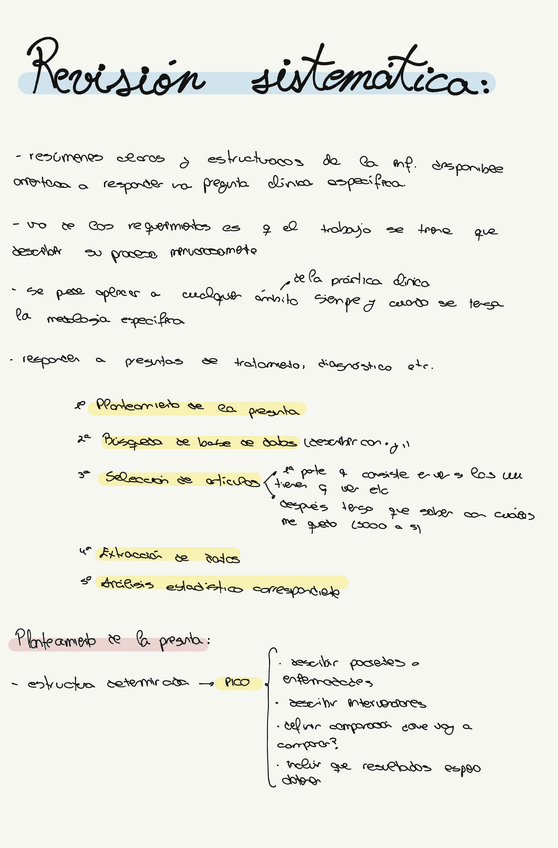 Revisión sistemática:
- resúmenes claros y estructurados de la inf. disponible
orientada a responder una pregunta clínica específica.
- uno de los requerimientos es q el trabajo se tiene que
describir su proceso minuciosamente
de la práctica clínica
- se puede aplicar a cualquier ámbito siempre y cuando se tenga
la metodología específica
· responder a preguntas de tratamiento, diagnóstico etc.
1º Planteamiento de la pregunta
2º Búsqueda de base de datos (describir con
3º Selección de artículos
1ª parte q consiste en ver si los
tienen q ver etc
después tengo que saber con cuáles
me quedo (5000 a 5)
4º Extracción de datos
5º Análisis estadístico correspondiente
Planteamiento de la pregunta:
- estructura determinada → PICO
· describir pacientes o
enfermedades
· describir intervenciones
· definir comparación ¿que voy a
comparar?
· incluir que resultados espero
obtener